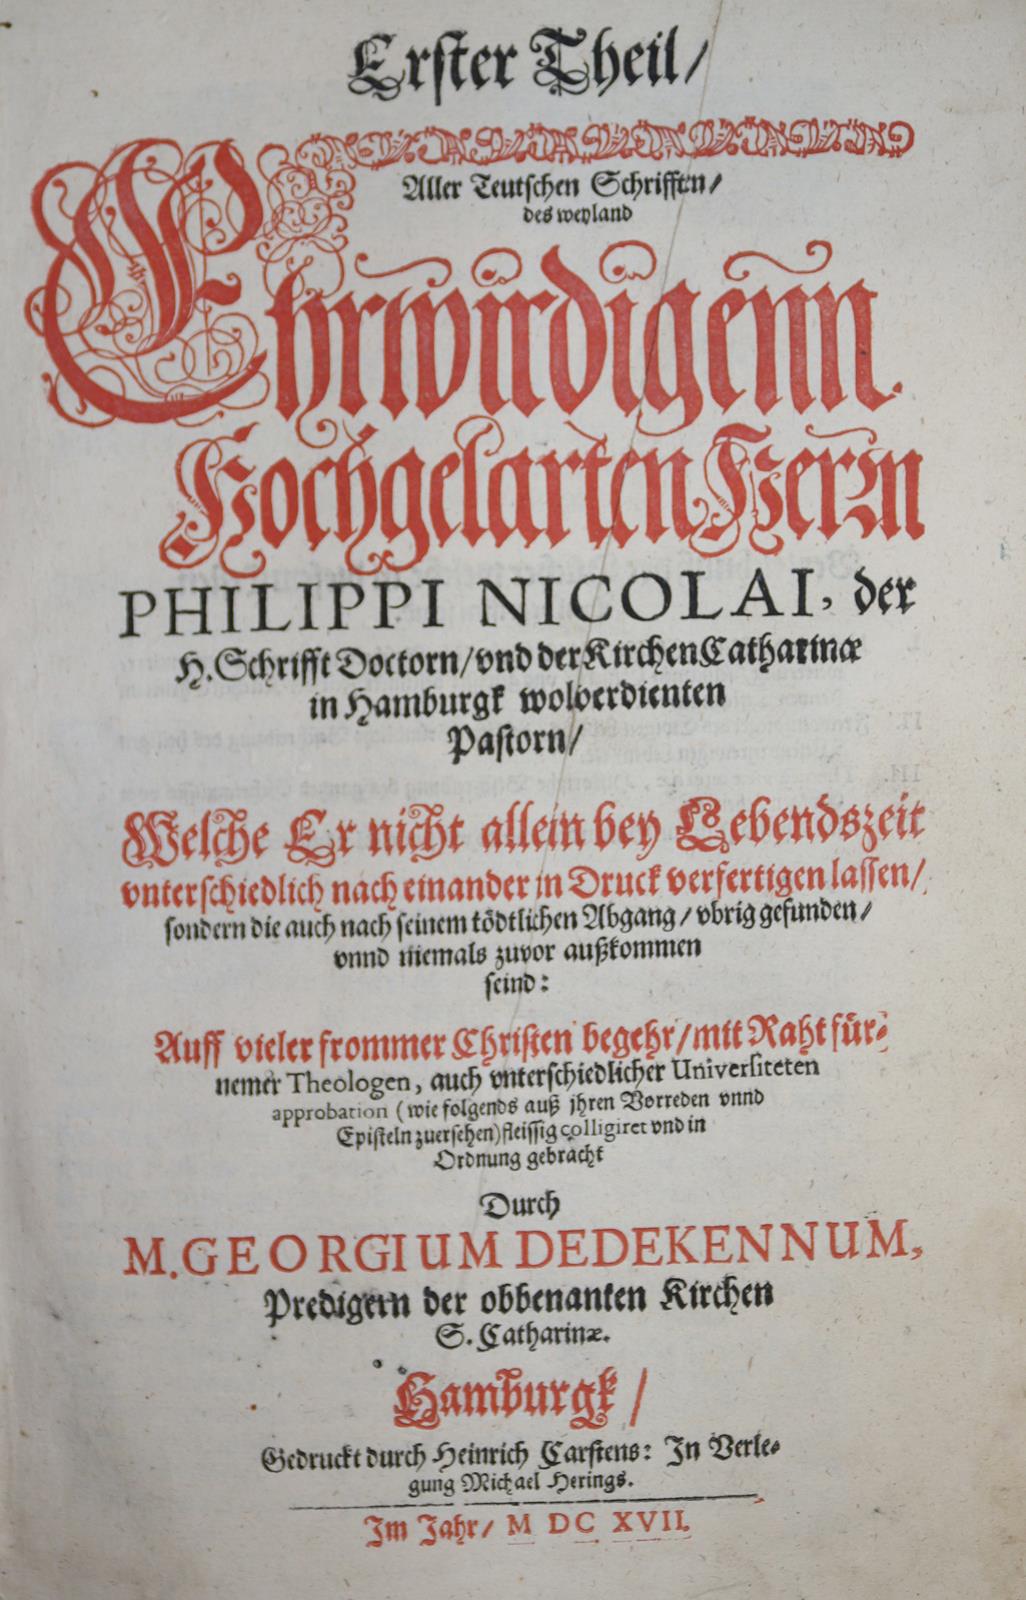 Erster Theil/
Aller Teutschen Schrifften/
des weyland
Ehrwirdigenn
Hochgelarten Herrn
PHILIPPI NICOLAI, der
H. Schrifft Doctorn/ vnd der Kirchen Catharinæ
in Hamburgk wolverdienten
Pastorn/
Welche Er nicht allein bey Lebendszeit
vnterschiedlich nach einander in Druck verfertigen lassen/
sondern die auch nach seinem tödtlichen Abgang/ vbrig gefunden/
vnnd niemals zuvor außkommen
seind:
Auff vieler frommer Christen begehr/ mit Raht für-
nemer Theologen, auch vnterschiedlicher Universiteten
approbation (wie folgends auß jhren Vorreden vnnd
Episteln zuersehen) fleissig colligiret vnd in
Ordnung gebracht
Durch
M. GEORGIUM DEDEKENNUM,
Predigern der obbenanten Kirchen
S. Catharinæ.
Hamburgk/
Gedruckt durch Heinrich Carstens: In Verle-
gung Michael Herings.
Im Jahr/ M DC XVII.